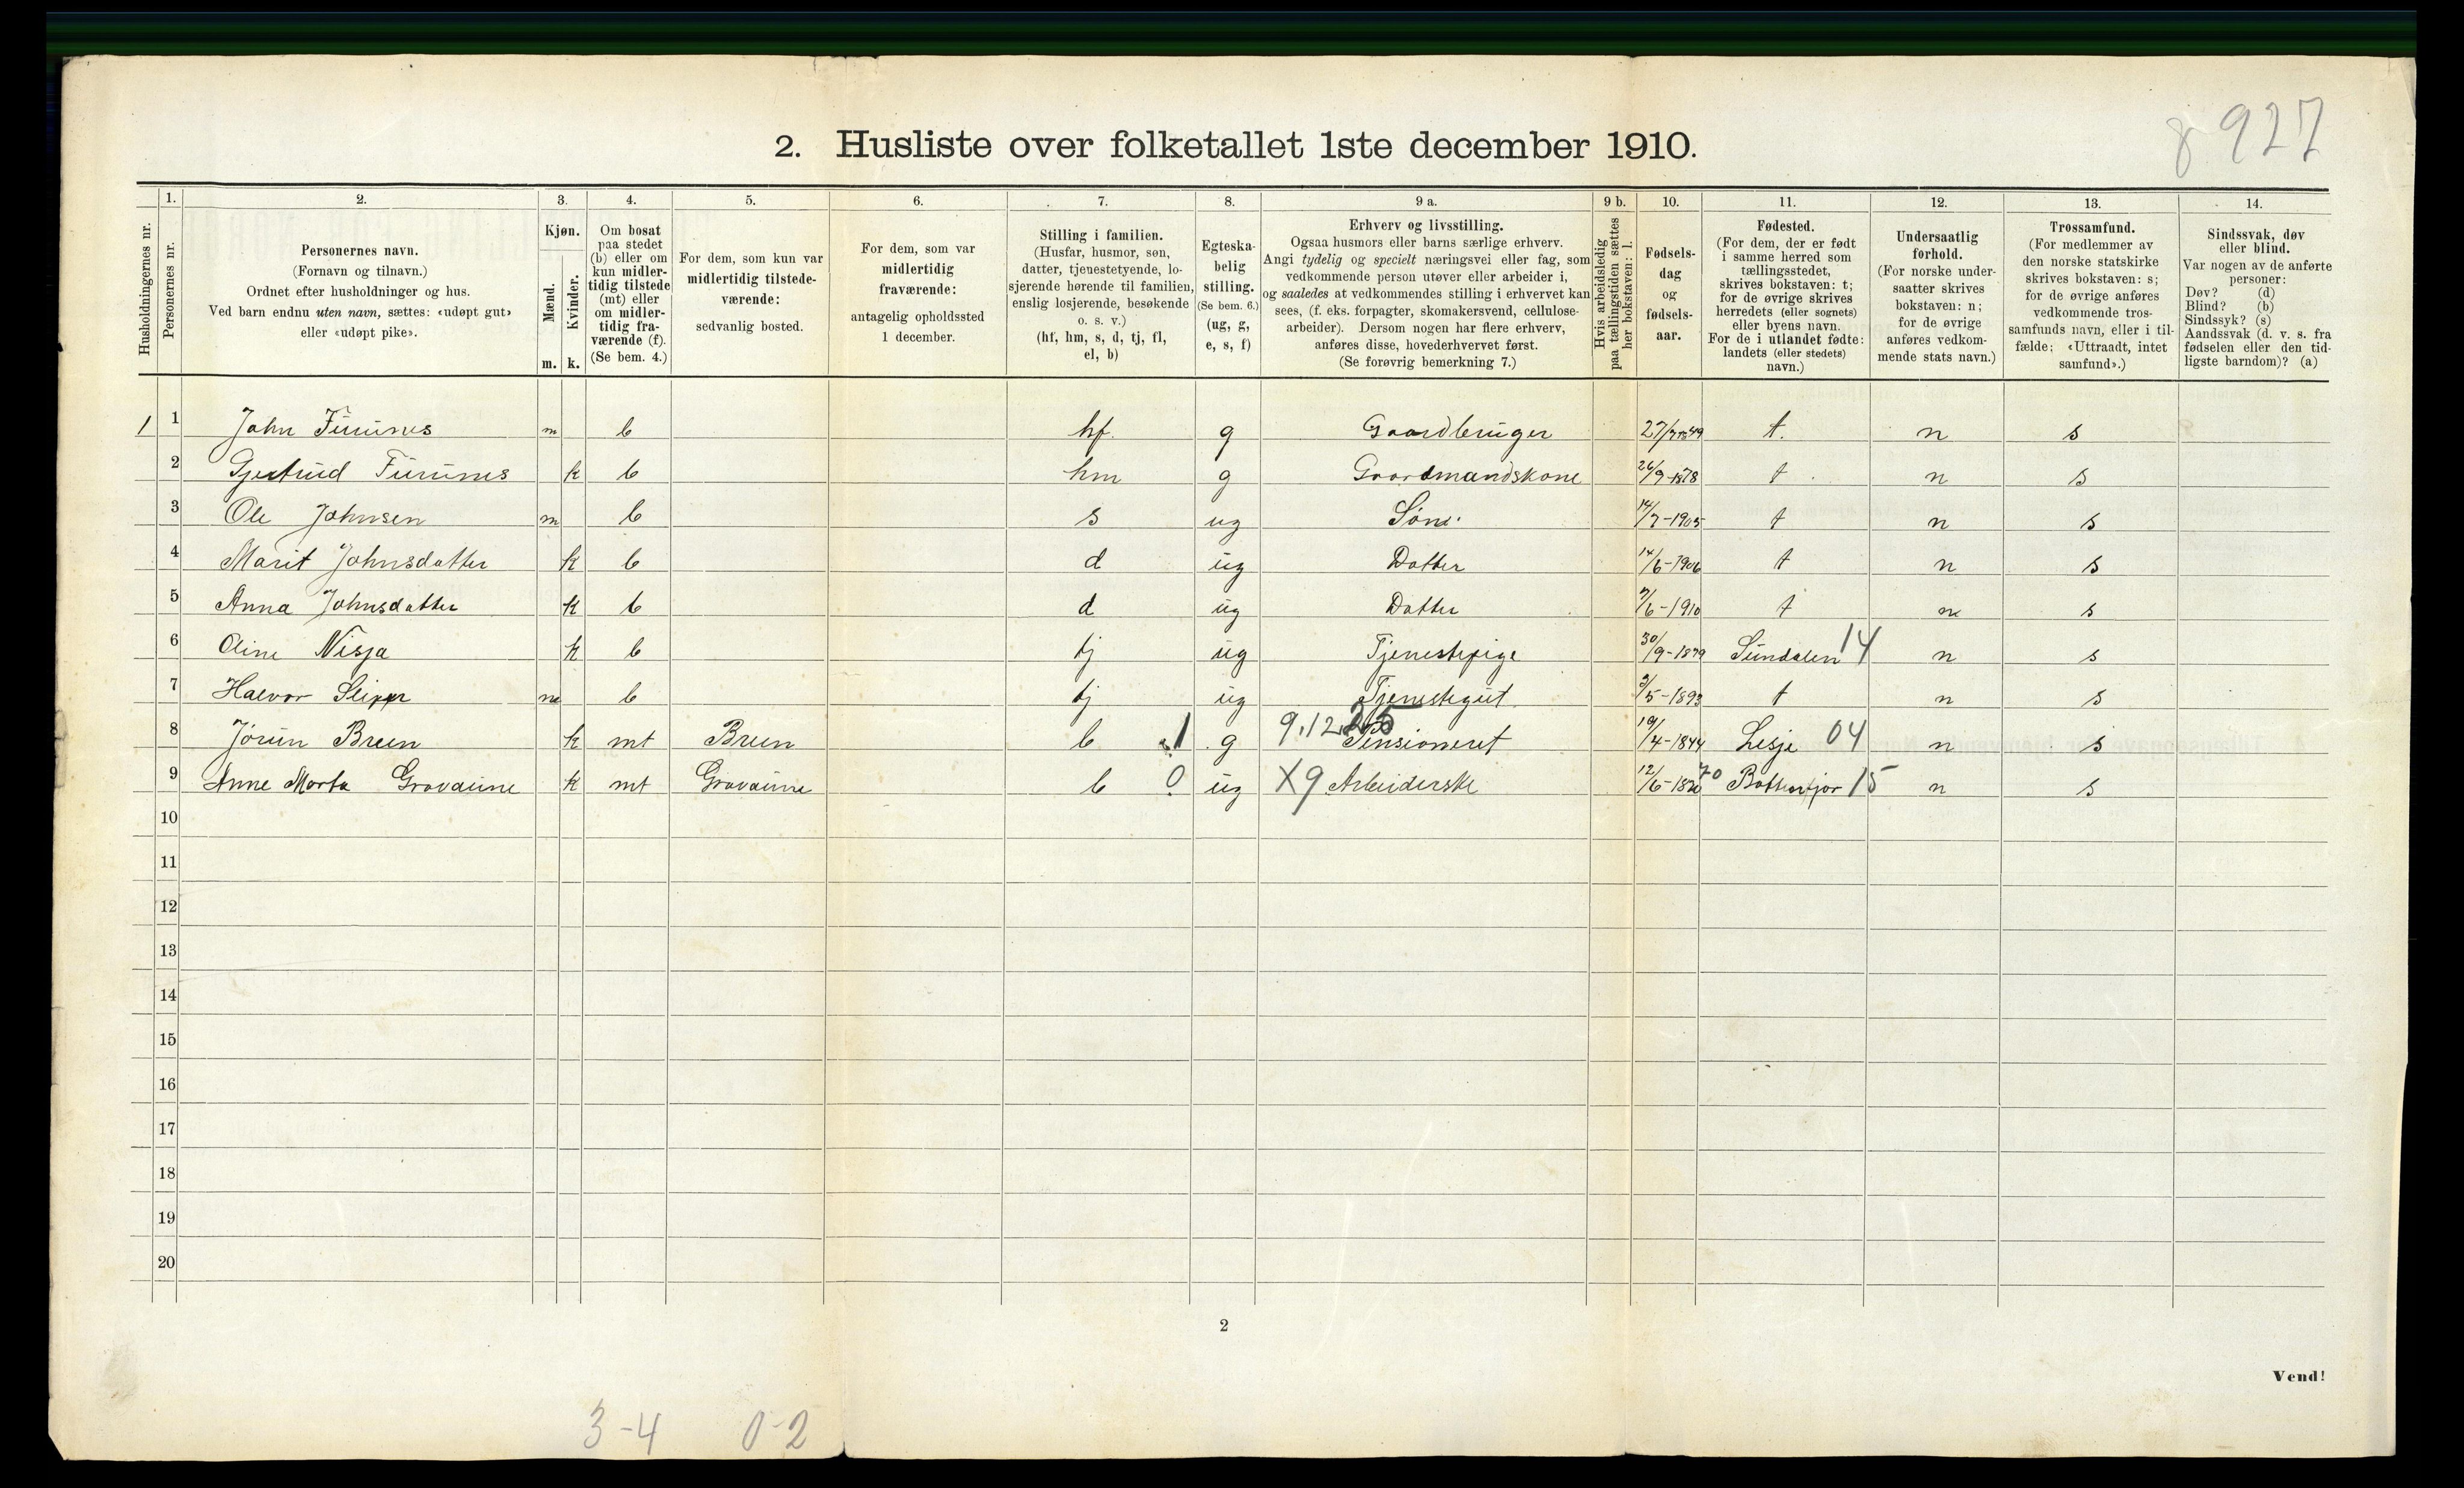 8 927
2. Husliste over folketallet 1ste december 1910.
Husholdningernes nr.
1. Personernes nr.
2. Personernes navn.
(Fornavn og tilnavn.)
Ordnet efter husholdninger og hus.
Ved barn endnu uten navn, sættes: «udøpt gut»
eller «udøpt pike».
3. Kjøn.
Mænd. m.
Kvinder. k.
4. Om bosat
paa stedet
(b) eller om
kun midler-
tidig tilstede
(mt) eller
om midler-
tidig fra-
værende (f).
(Se bem. 4.)
5. For dem, som kun var
midlertidig tilstede-
værende:
sedvanlig bosted.
6. For dem, som var
midlertidig
fraværende:
antagelig opholdssted
1 december.
7. Stilling i familien.
(Husfar, husmor, søn,
datter, tjenestetyende, lo-
sjerende hørende til familien,
enslig losjerende, besøkende
o. s. v.)
(hf, hm, s, d, tj, fl,
el, b)
8. Egteska-
belig
stilling.
(Se bem. 6.)
(ug, g,
e, s, f)
9 a. Erhverv og livsstilling.
Ogsaa husmors eller barns særlige erhverv.
Angi tydelig og specielt næringsvei eller fag, som
vedkommende person utøver eller arbeider i,
og saaledes at vedkommendes stilling i erhvervet kan
sees, (f. eks. forpagter, skomakersvend, cellulose-
arbeider). Dersom nogen har flere erhverv,
anføres disse, hovederhvervet først.
(Se forøvrig bemerkning 7.)
9 b. Hvis arbeidsledig
paa tællingstiden sættes
her bokstaven: l.
10. Fødsels-
dag
og
fødsels-
aar.
11. Fødested.
(For dem, der er født
i samme herred som
tællingsstedet,
skrives bokstaven: t;
for de øvrige skrives
herredets (eller sognets)
eller byens navn.
For de i utlandet fødte:
landets (eller stedets)
navn.)
12. Undersaatlig
forhold.
(For norske under-
saatter skrives
bokstaven: n;
for de øvrige
anføres vedkom-
mende stats navn.)
13. Trossamfund.
(For medlemmer av
den norske statskirke
skrives bokstaven: s;
for de øvrige anføres
vedkommende tros-
samfunds navn, eller i til-
fælde: «Uttraadt, intet
samfund».)
14. Sindssvak, døv
eller blind.
Var nogen av de anførte
personer:
Døv? (d)
Blind? (b)
Sindssyk? (s)
Aandssvak (d. v. s. fra
fødselen eller den tid-
ligste barndom)? (a)
1 1 John Furunes m b hf. g Gaardbruger 27/7 1849 t. n s
2 Gjertrud Furunes k b hm g Gaardmandskone 26/9-1878 t n s
3 Ole Johnsen m b s ug Søn 14/7-1905 t n s
4 Marit Johnsdatter k b d ug Datter 14/6-1906 t n s
5 Anna Johnsdatter k b d ug Datter 7/6-1910 t n s
6 Oline Nisja k b tj ug Tjenestepige 30/9-1879 Sundalen 14 n s
7 Halvor Slipper m b tj ug Tjenestegut 9/5-1893 t n s
8 Jørun Breen k mt Breen b 1 g 9.12 Pensioneret 19/4-1844 Lesje 04 n s
9 Anne Marta Gravaune k mt Gravaune b 0 ug X9 Arbeiderske 12/6-18 70 15 n s
10
11
12
13
14
15
16
17
18
19
20
2
Vend!
3-4 0-2